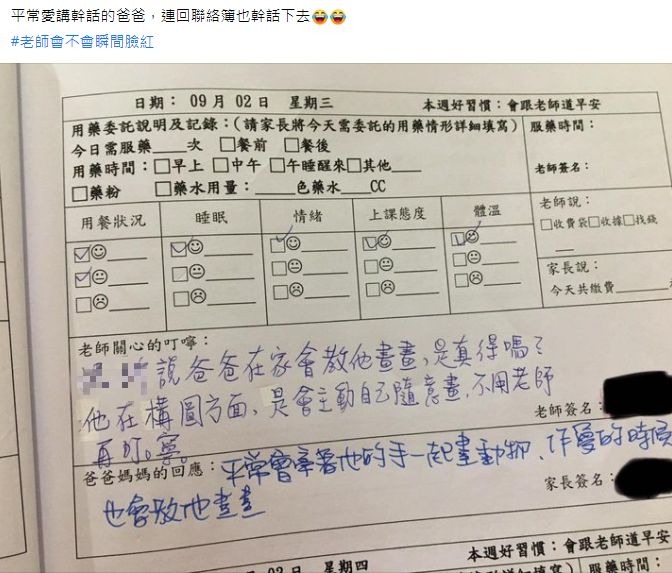 平常愛講幹話的爸爸，連回聯絡簿也幹話下去😆😆
#老師會不會瞬間臉紅
日期： 09 月 02 日 星期三 本週好習慣：會跟老師道早安
用藥委託說明及記錄：（請家長將今天需委託的用藥情形詳細填寫） 服藥時間：
今日需服藥____次 □餐前 □餐後
用藥時間：□早上 □中午 □午睡醒來□其他____ 老師簽名：
□藥粉 □藥水用量：____色藥水____CC
用餐狀況 睡眠 情緒 上課態度 體溫 老師說：
□收費袋□收據□找錢
家長說：
今天共繳費
老師關心的叮嚀：
說爸爸在家會教他畫畫，是真得嗎？
他在構圖方面，是會主動自己隨意畫，不用老師
再叮嚀。 老師簽名：
爸爸媽媽的回應：平常會牽著他的手一起畫動物、作愛的時候
也會教他畫畫 家長簽名：
本週好習慣：會跟老師道早安
日 星期四
服藥時間：